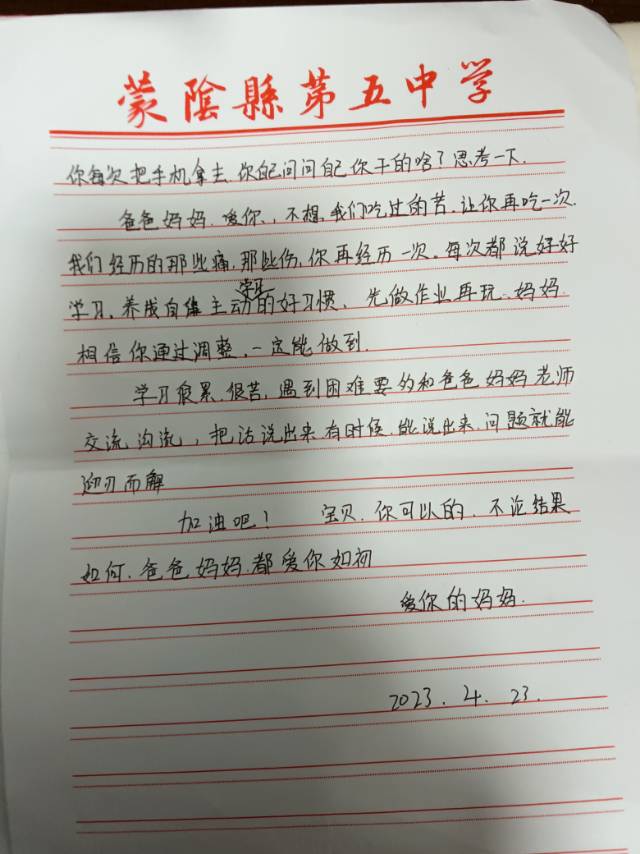 蒙陰縣第五中学
你每次把手机拿去,你自己问问自己你干的啥?思考一下.
爸爸妈妈.爱你、不想,我们吃过的苦.让你再吃一次.
我们经历的那些痛.那些伤,你再经历一次。每次都说好好
学习。养成自律主动学习的好习惯、先做作业再玩.妈妈
相信你通过调整.一定能做到.
学习很累.很苦,遇到困难要多和爸爸妈妈老师
交流沟流,把话说出来有时候.能说出来.问题就能
迎刃而解
加油吧! 宝贝.你可以的.不论结果
如何.爸爸妈妈.都爱你如初
爱你的妈妈.
2023.4.23.